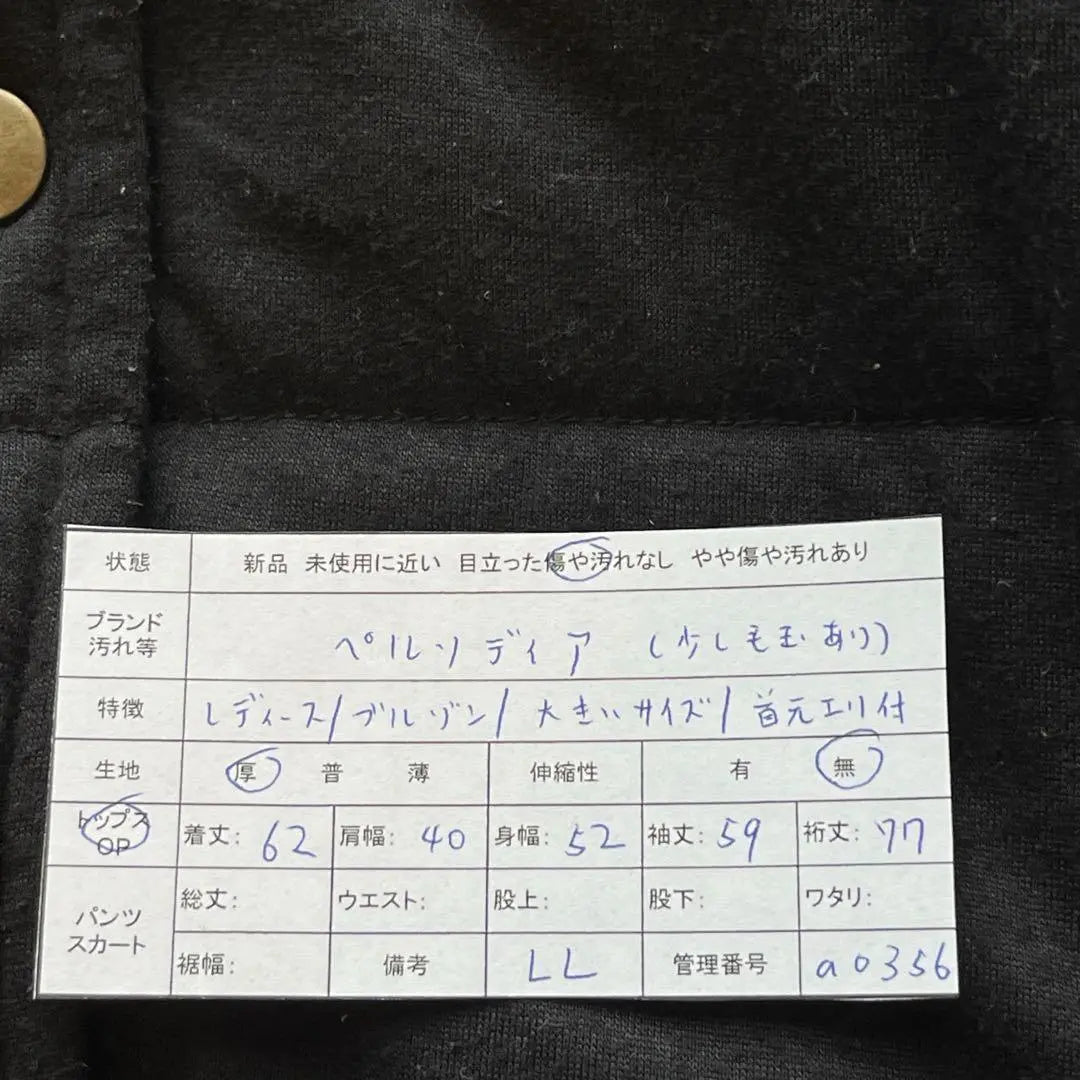 状態 新品 未使用に近い 目立った傷や汚れなし やや傷や汚れあり
ブランド
汚れ等 ペルソディア (少し毛玉あり)
特徴 レディース/ブルゾン/大きいサイズ/首元エリ付
生地 厚 普 薄 伸縮性 有 無
トップス
OP 着丈: 62 肩幅: 40 身幅: 52 袖丈: 59 裄丈: 77
パンツ
スカート 総丈: ウエスト: 股上: 股下: ワタリ:
裾幅: 備考 LL 管理番号 a0356